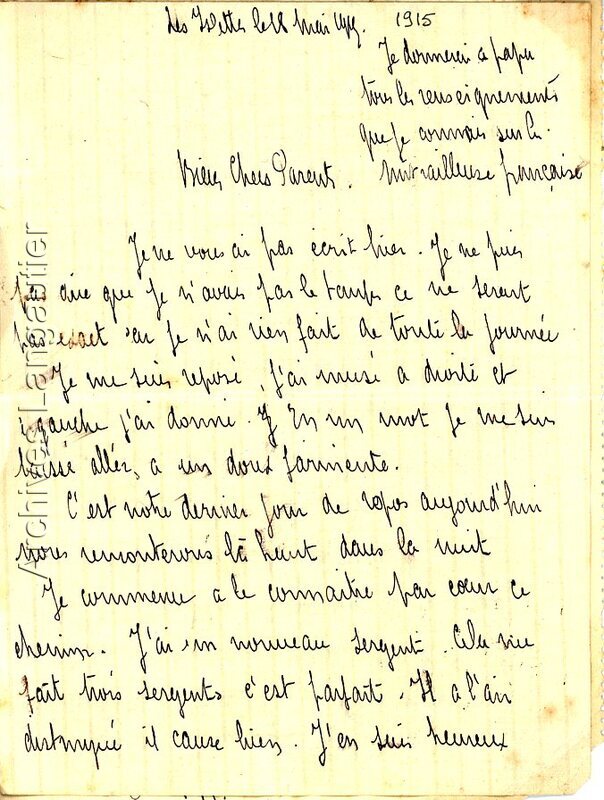 Les le 18 Mai 1915. 1915
Je donnerai a papa
tous les renseignements
que je connais sur la
mitrailleuse française
Biens Chers Parents.
Je ne vous ai pas écrit hier. Je ne puis
pas dire que je n'avais pas le temps ce ne serait
pas exact car je n'ai rien fait de toute la journée
Je me suis reposé, j'ai musé a droite et
a gauche j'ai dormi. En un mot je me suis
laissé aller, a un doux farniente.
C'est notre dernier jour de repos aujourd'hui
nous remonterons là haut dans la nuit
Je commence a le connaitre par cœur ce
chemin. J'ai un nouveau sergent. Cela me
fait trois sergents c'est parfait. Il a l'air
distingué il cause bien. J'en suis heureux
Archives Langautier